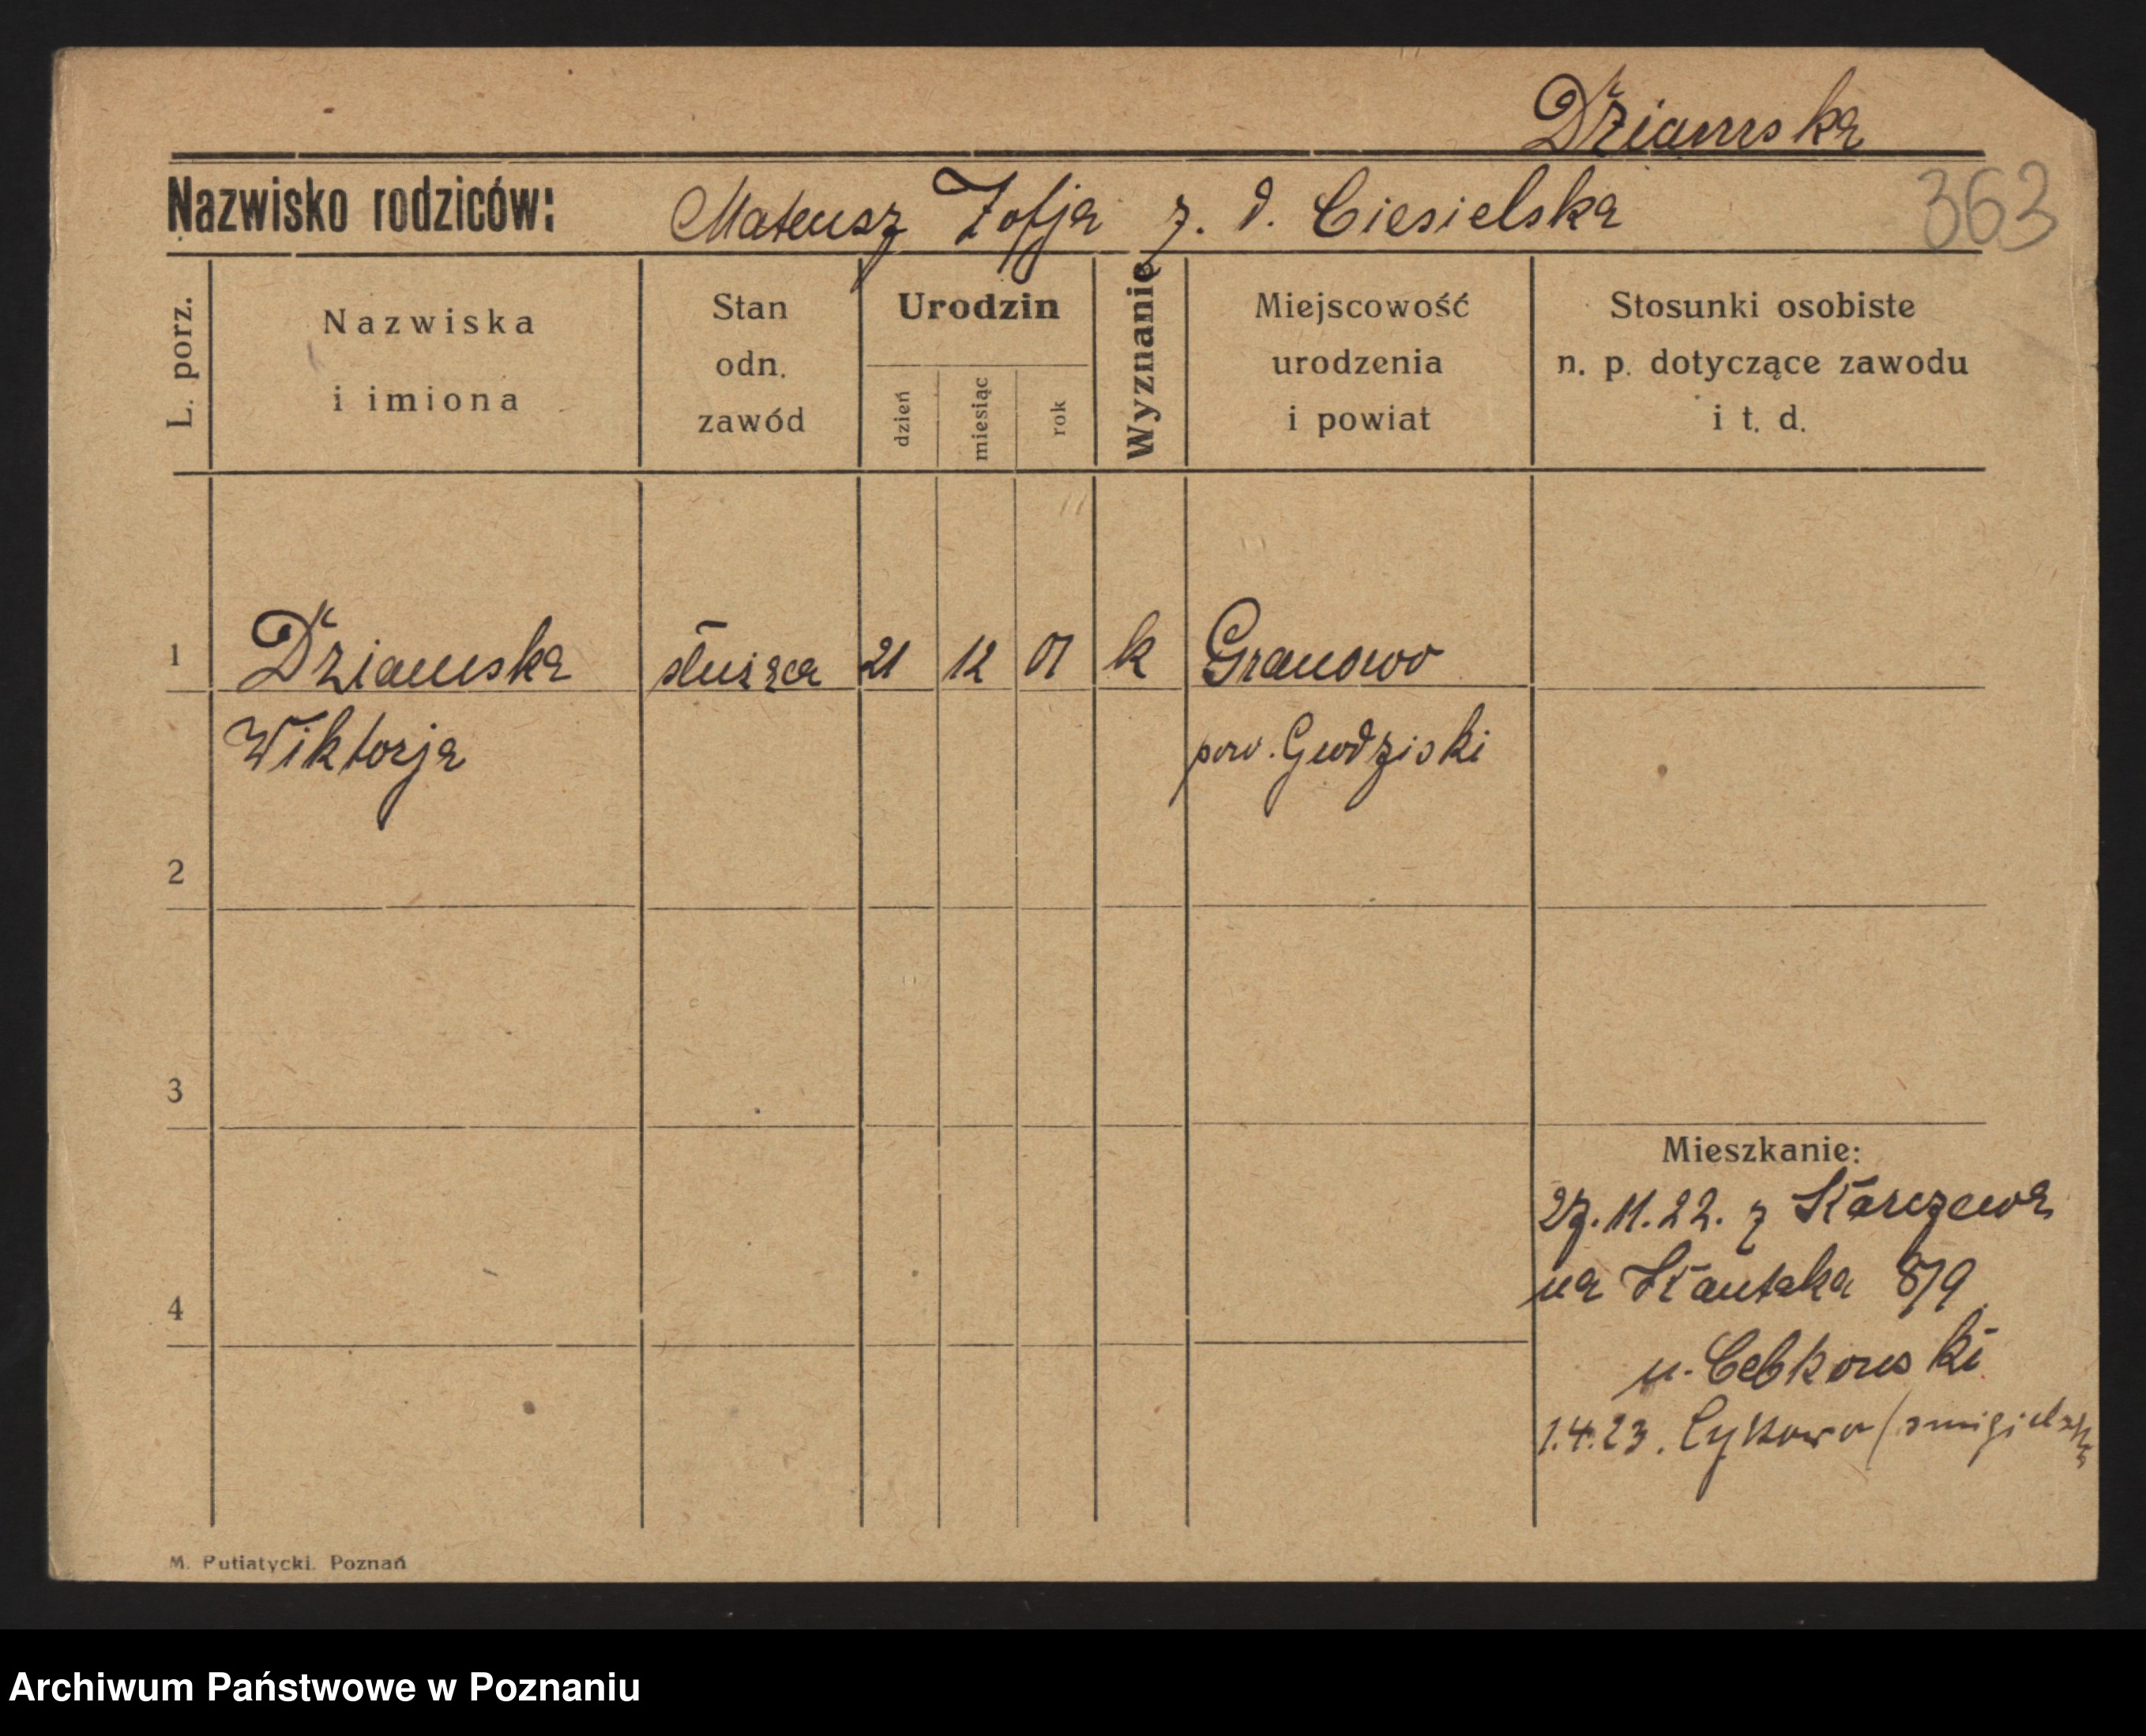 Dziamska
Nazwisko rodziców: Mateusz Zofja z. d. Ciesielska 363
L. porz.
Nazwiska
i imiona
Stan
odn.
zawód
Urodzin
dzień
miesiąc
rok
Wyznanie
Miejscowość
urodzenia
i powiat
Stosunki osobiste
n. p. dotyczące zawodu
i t. d.
1 Dziamska służąca 21 12 01 k Granowo
Wiktorja pow. Grodziski
2
3
Mieszkanie:
27.11.22. z Karczewa
na Kantaka 8/9
4
u. Cebkowski
1.4.23. Łykowo (smigielski
M. Putiatycki. Poznań
Archiwum Państwowe w Poznaniu